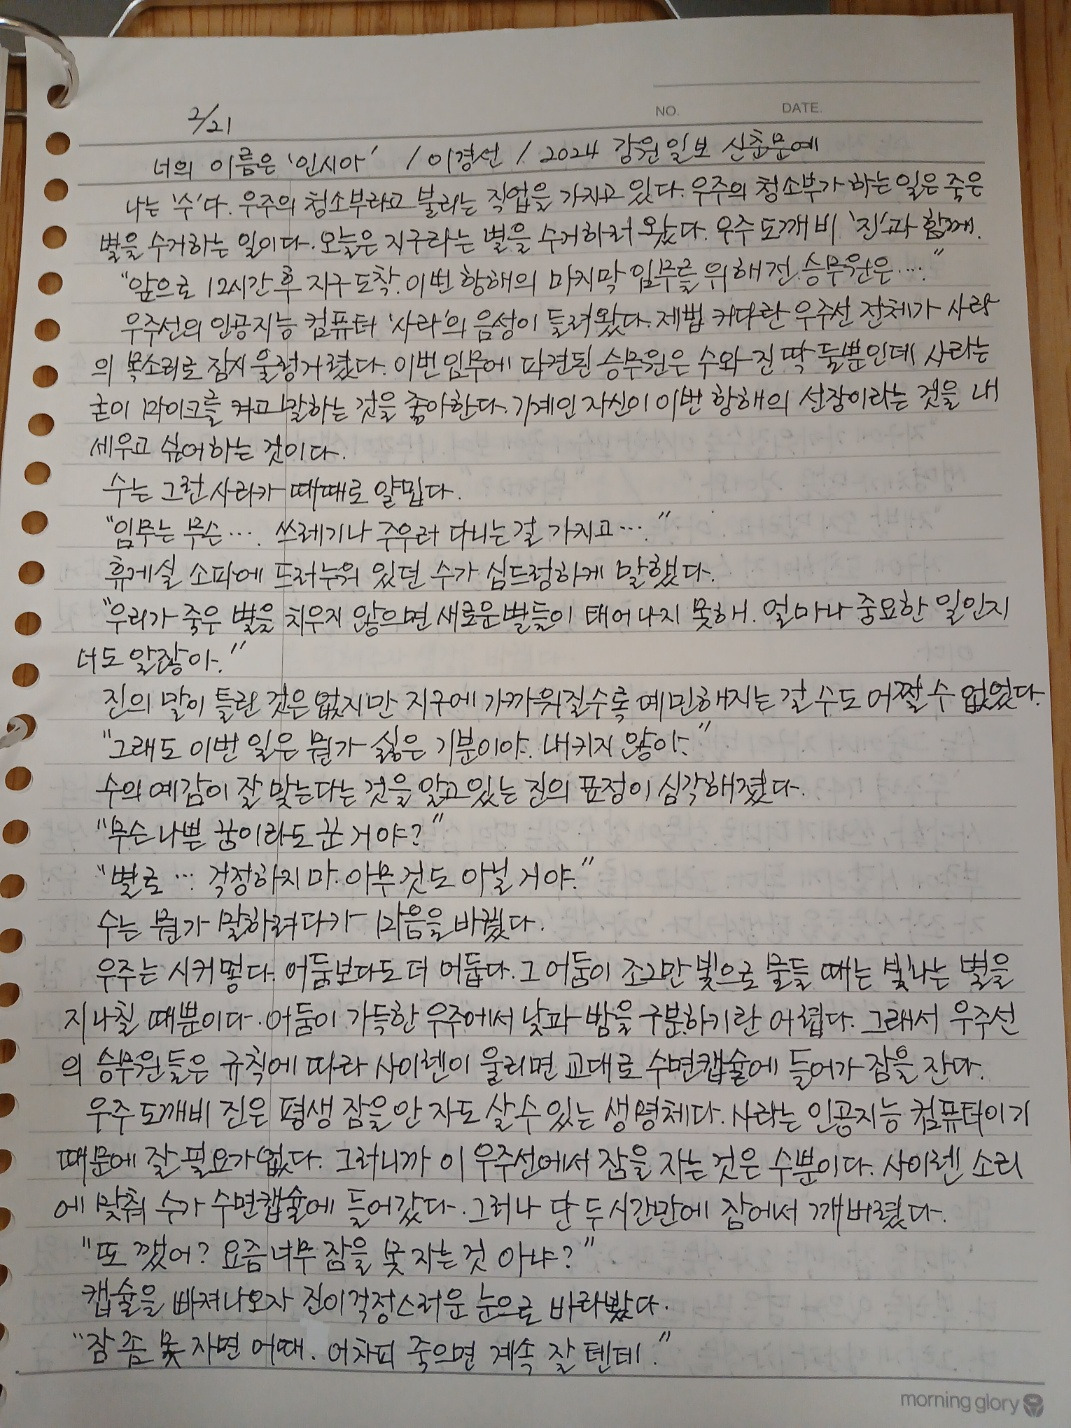 NO. DATE.
2/21
너의 이름은 '인시아' / 이경선 / 2024 강원일보 신춘문예
나는 '수'다. 우주의 청소부라고 불리는 직업을 가지고 있다. 우주의 청소부가 하는 일은 죽은
별을 수거하는 일이다. 오늘은 지구라는 별을 수거하러 왔다. 우주 도깨비 '진'과 함께.
"앞으로 12시간 후 지구 도착. 이번 항해의 마지막 임무를 위해 전 승무원은...."
우주선의 인공지능 컴퓨터 '사라'의 음성이 들려왔다. 제법 커다란 우주선 전체가 사라
의 목소리로 잠시 울렁거렸다. 이번 임무에 파견된 승무원은 수와 진 딱 둘뿐인데 사라는
굳이 마이크를 켜고 말하는 것을 좋아한다. 기계인 자신이 이번 항해의 선장이라는 것을 내
세우고 싶어하는 것이다.
수는 그런 사라가 때때로 얄밉다.
"임무는 무슨.... 쓰레기나 주우러 다니는 걸 가지고...."
휴게실 소파에 드러누워 있던 수가 심드렁하게 말했다.
"우리가 죽은 별을 치우지 않으면 새로운 별들이 태어나지 못해. 얼마나 중요한 일인지
너도 알잖아."
진의 말이 틀린 것은 없지만 지구에 가까워질수록 예민해지는 걸 수도 어쩔 수 없었다.
"그래도 이번 일은 뭔가 싫은 기분이야. 내키지 않아."
수의 예감이 잘 맞는다는 것을 알고 있는 진의 표정이 심각해졌다.
"무슨 나쁜 꿈이라도 꾼 거야?"
"별로... 걱정하지 마. 아무것도 아닐 거야."
수는 뭔가 말하려다가 마음을 바꿨다.
우주는 시커멓다. 어둠보다도 더 어둡다. 그 어둠이 조그만 빛으로 물들 때는 빛나는 별을
지나칠 때뿐이다. 어둠이 가득한 우주에서 낮과 밤을 구분하기란 어렵다. 그래서 우주선
의 승무원들은 규칙에 따라 사이렌이 울리면 교대로 수면캡슐에 들어가 잠을 잔다.
우주 도깨비 진은 평생 잠을 안 자도 살 수 있는 생명체다. 사라는 인공지능 컴퓨터이기
때문에 잘 필요가 없다. 그러니까 이 우주선에서 잠을 자는 것은 수뿐이다. 사이렌 소리
에 맞춰 수가 수면캡슐에 들어갔다. 그러나 단 두 시간만에 잠에서 깨버렸다.
"또 깼어? 요즘 너무 잠을 못 자는 것 아냐?"
캡슐을 빠져나오자 진이 걱정스러운 눈으로 바라봤다.
"잠 좀 못 자면 어때. 어차피 죽으면 계속 잘 텐데."
morning glory